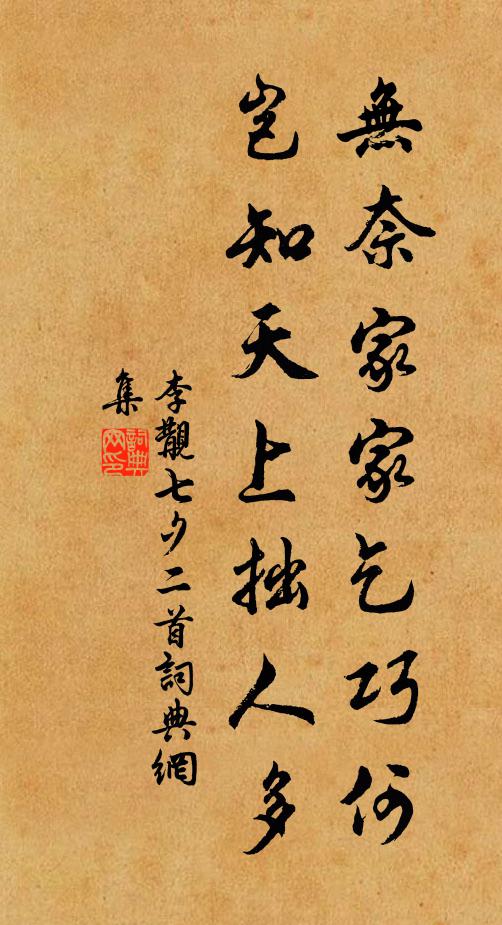 無奈家家乞巧何
豈知天上拙人多
李覯七夕二首詞典網
集
詞典網印